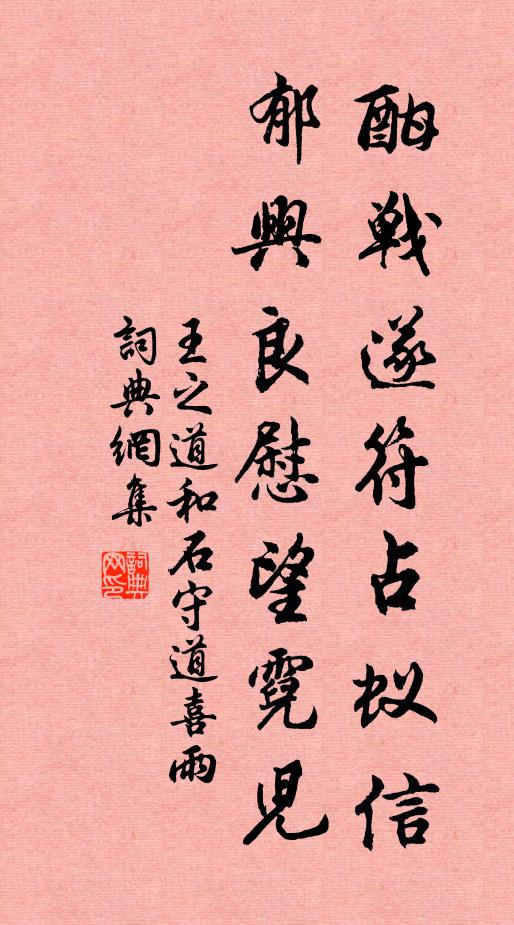 酣戦遂符占蚁信
郁興良慰望霓児
王之道和石守道喜雨
詞典網集
詞典网印